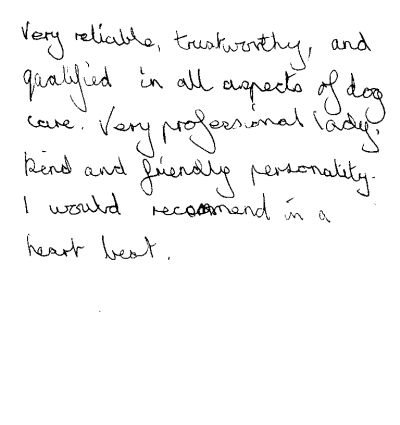 Very reliable, trustworthy, and
qualified in all aspects of dog
care. Very professional lady,
kind and friendly personality.
I would recommend in a
heart beat.